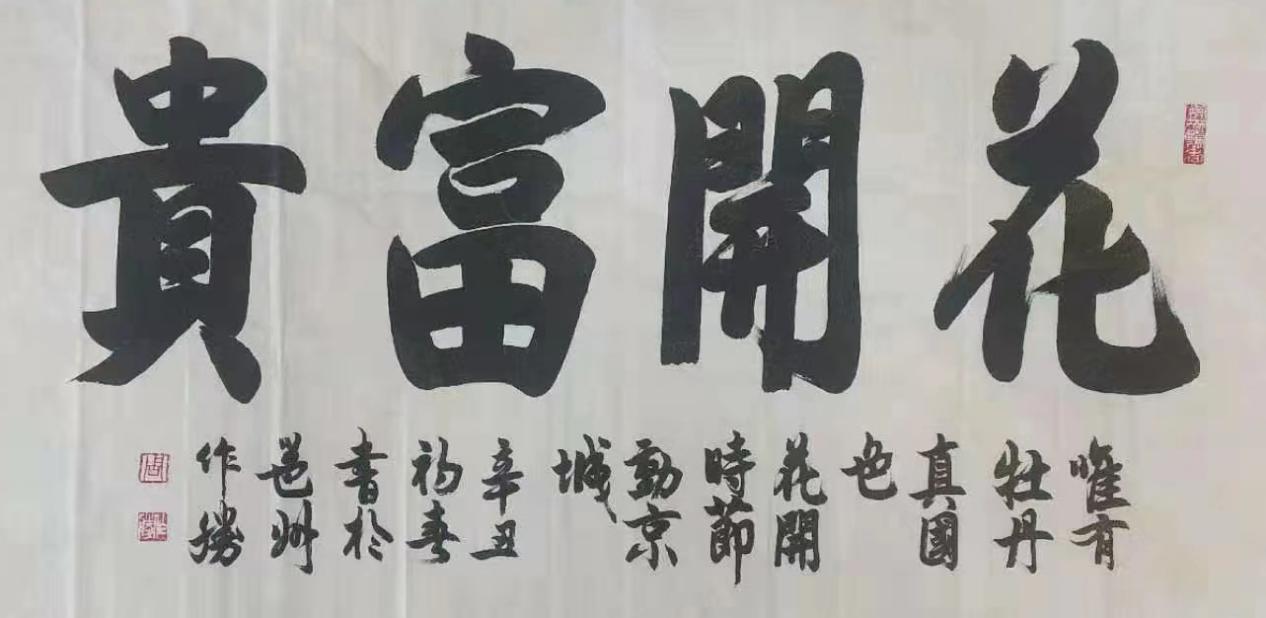 花開富貴
唯有
牡丹
真國
色
花開
時節
動京
城
辛丑
初春
書於
邕州
作勝
周